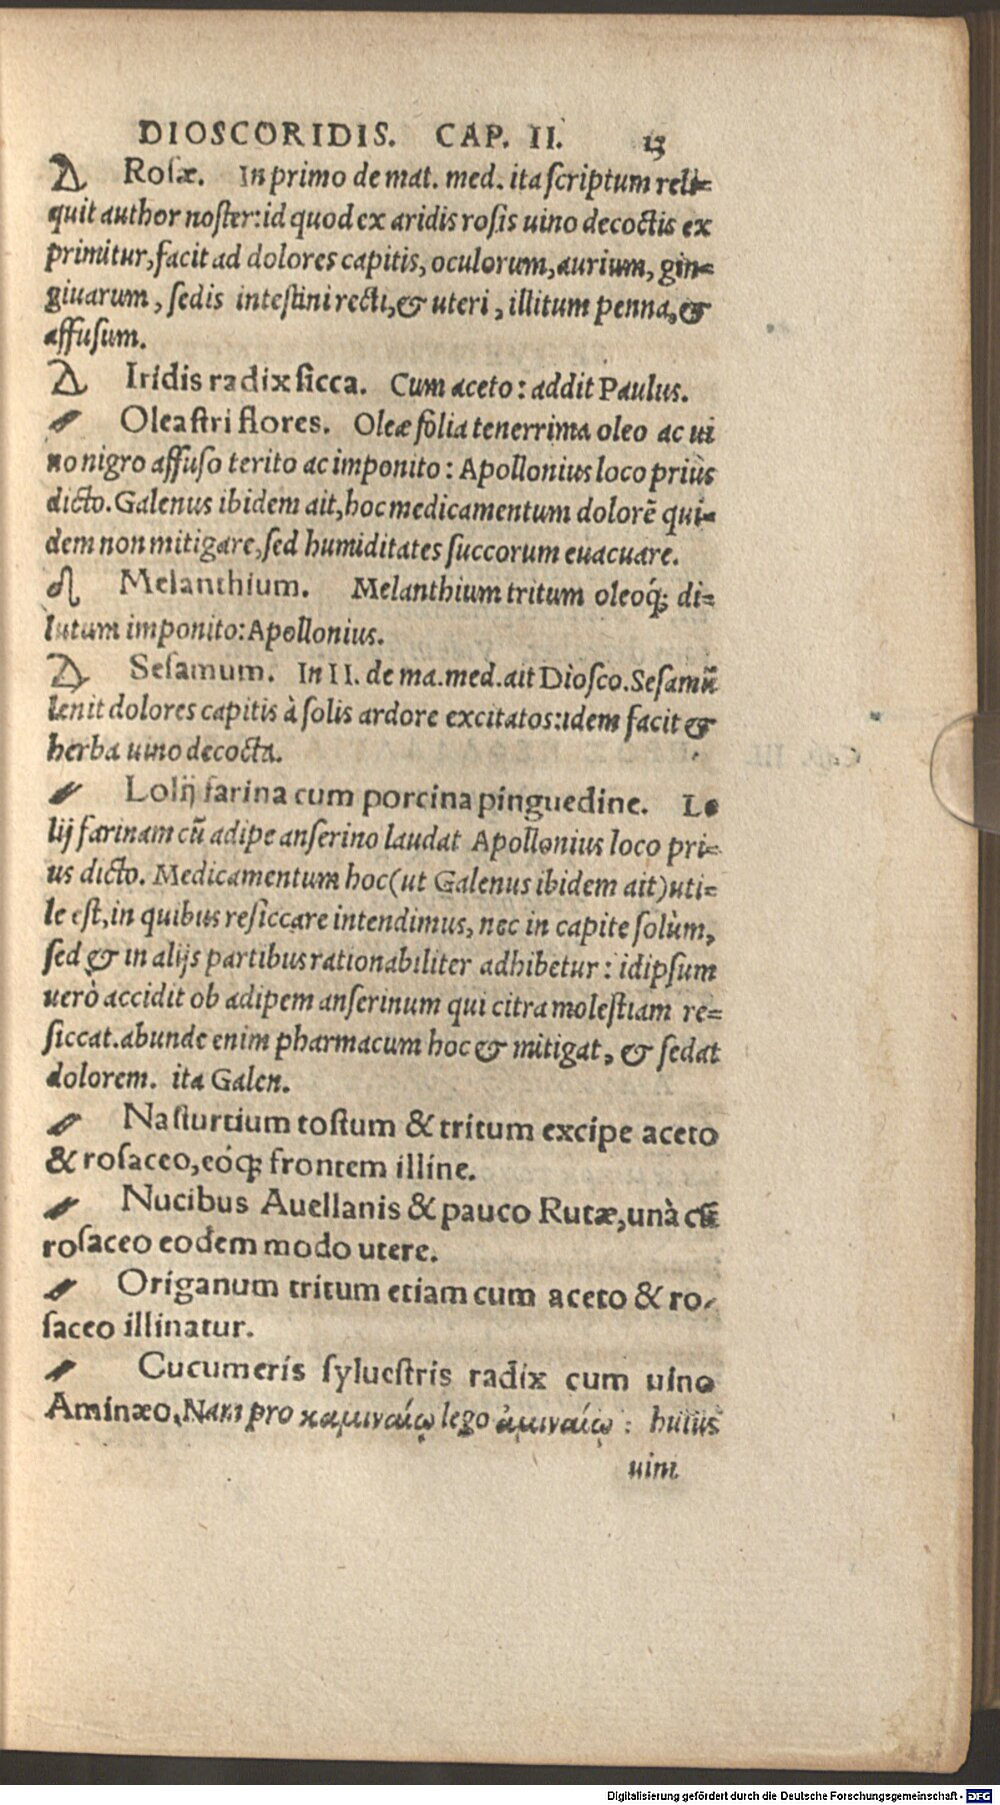 DIOSCORIDIS. CAP. II. 13
Δ Rosæ. In primo de mat. med. ita scriptum reli-
quit author noster: id quod ex aridis rosis uino decoctis ex
primitur, facit ad dolores capitis, oculorum, aurium, gin-
giuarum, sedis intestini recti, & uteri, illitum penna, &
affusum.
Δ Iridis radix sicca. Cum aceto: addit Paulus.
Oleastri flores. Oleæ folia tenerrima oleo ac ui
no nigro affuso terito ac imponito: Apollonius loco priùs
dicto. Galenus ibidem ait, hoc medicamentum dolorē qui-
dem non mitigare, sed humiditates succorum euacuare.
Melanthium. Melanthium tritum oleoq́; di-
lutum imponito: Apollonius.
Δ Sesamum. In II. de ma. med. ait Diosco. Sesamū
lenit dolores capitis à solis ardore excitatos: idem facit &
herba uino decocta.
Lolij farina cum porcina pinguedine. Lo
lij farinam cū adipe anserino laudat Apollonius loco pri-
us dicto. Medicamentum hoc (ut Galenus ibidem ait) uti-
le est, in quibus resiccare intendimus, nec in capite solùm,
sed & in alijs partibus rationabiliter adhibetur: idipsum
uerò accidit ob adipem anserinum qui citra molestiam re-
siccat. abunde enim pharmacum hoc & mitigat, & sedat
dolorem. ita Galen.
Nasturtium tostum & tritum excipe aceto
& rosaceo, eóq; frontem illine.
Nucibus Auellanis & pauco Rutæ, unà cū
rosaceo eodem modo utere.
Origanum tritum etiam cum aceto & ro-
saceo illinatur.
Cucumeris syluestris radix cum uino
Aminæo, Nam pro καμιναίῳ lego ἀμιναίῳ: huius
uini
Digitalisierung gefördert durch die Deutsche Forschungsgemeinschaft - DFG